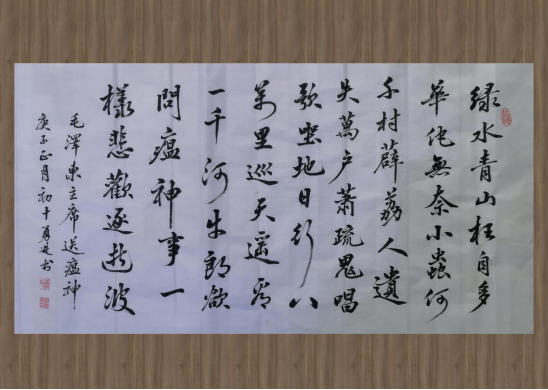 緑水青山枉自多
華佗無奈小蟲何
千村薜荔人遺
失萬户蕭疏鬼唱
歌坐地日行八
萬里巡天遥看
一千河牛郎欲
問瘟神事一
樣悲歡逐逝波
毛澤東主席送瘟神
庚子正月初十书